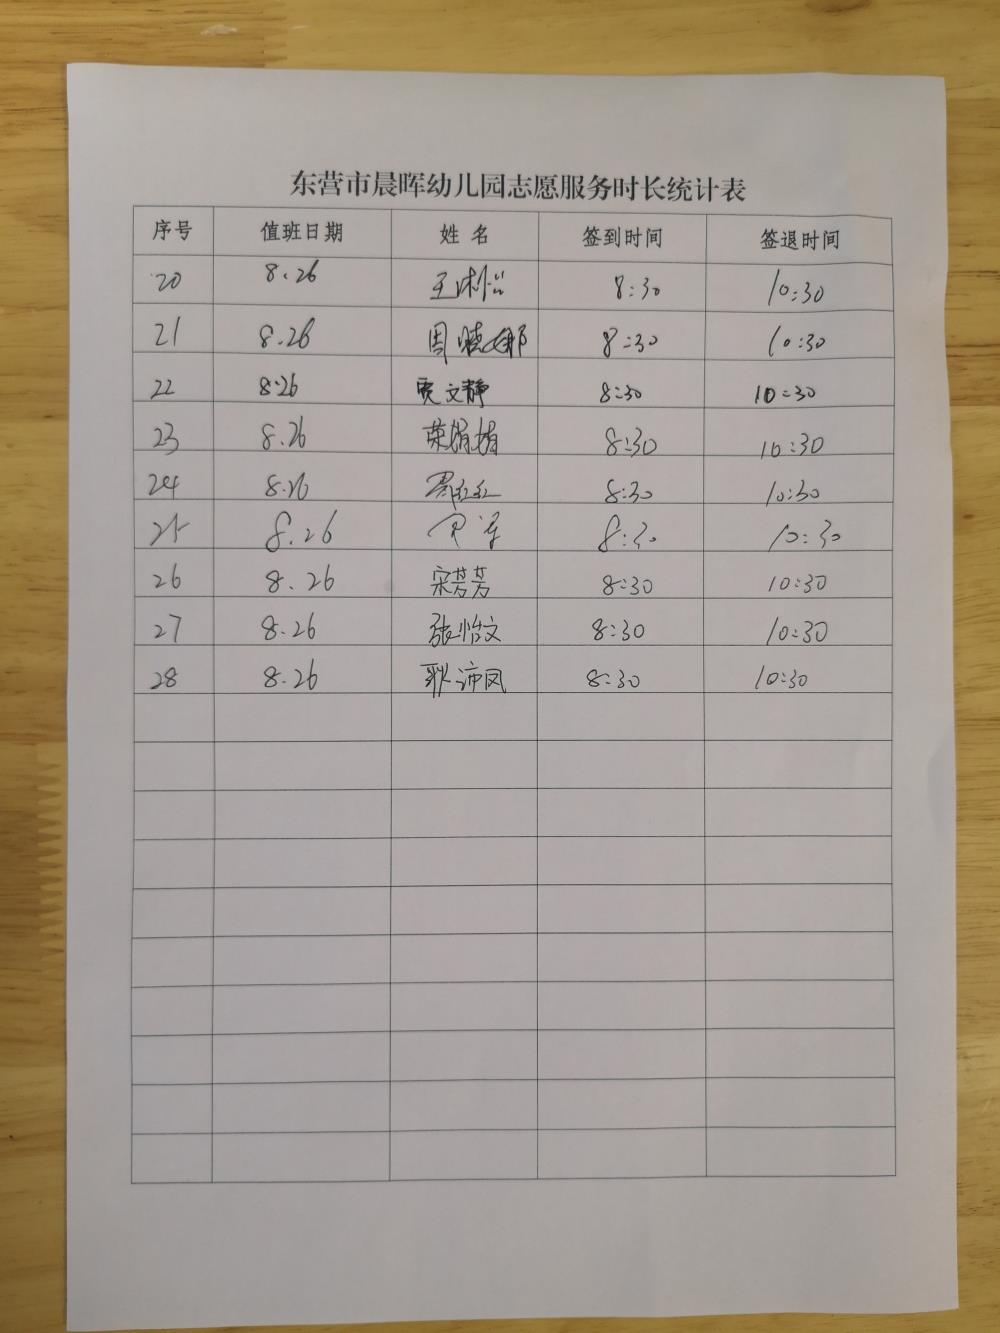 东营市晨晖幼儿园志愿服务时长统计表
序号 值班日期 姓名 签到时间 签退时间
20 8.26 王沐怡 8:30 10:30
21 8.26 周晓娜 8:30 10:30
22 8.26 贾文静 8:30 10:30
23 8.26 荣娟娟 8:30 10:30
24 8.26 周红红 8:30 10:30
25 8.26 8:30 10:30
26 8.26 宋芳芳 8:30 10:30
27 8.26 张怡文 8:30 10:30
28 8.26 耿沛凤 8:30 10:30